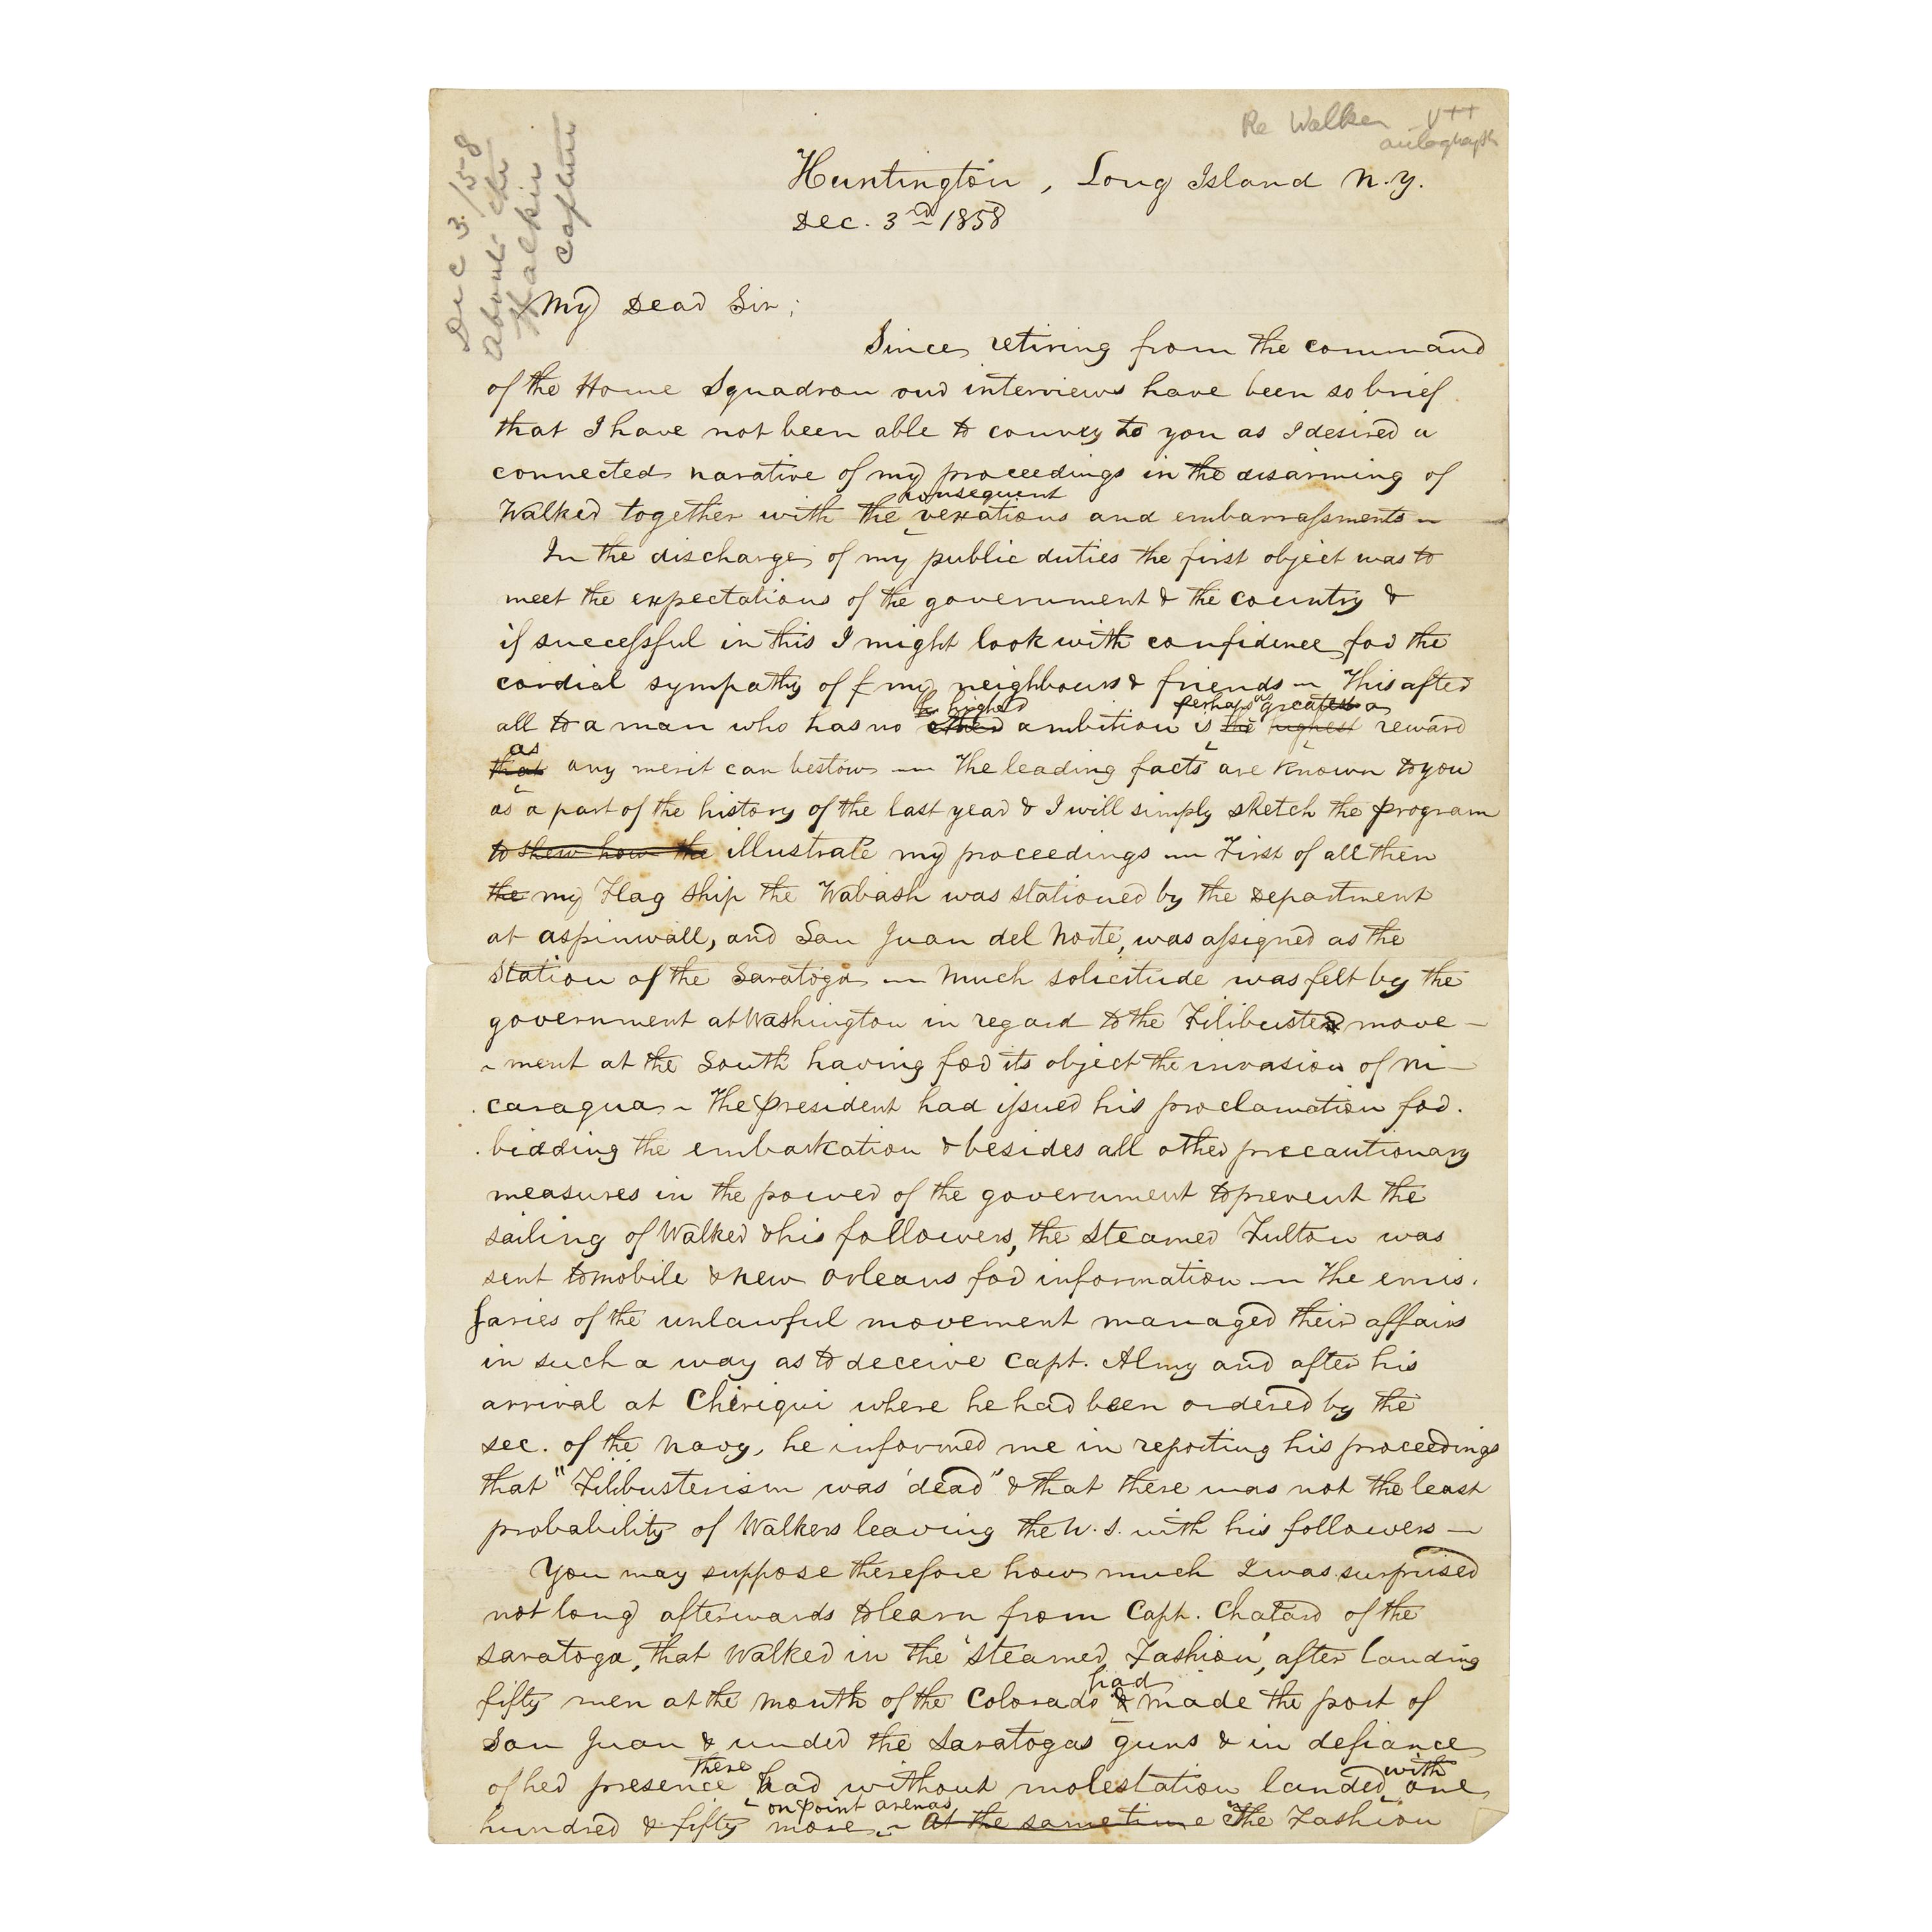 Re Walker V++
autograph
Dec 3. /58
About the
Walker
Capture
Huntington, Long Island N.Y.
Dec. 3rd 1858
My Dear Sir;
Since retiring from the command
of the Home Squadron our interviews have been so brief
that I have not been able to convey to you as I desired a
connected narative of my proceedings in the disarming of
consequent
Walker together with the vexations and embarrassments —
In the discharge of my public duties the first object was to
meet the expectations of the government & the country &
if successful in this I might look with confidence for the
cordial sympathy of f my neighbours & friends — This after
higher perhaps as greatest a
all to a man who has no other ambition is the highest reward
as
that any merit can bestow — The leading facts are known to you
as a part of the history of the last year & I will simply sketch the program
to shew how the illustrate my proceedings — First of all then
the my Flag ship the Wabash was stationed by the Department
at Aspinwall, and San Juan del Norte, was assigned as the
station of the Saratoga — Much solicitude was felt by the
government at Washington in regard to the Filibuster move-
-ment at the South having for its object the invasion of Ni-
caragua — The President had issued his proclamation for.
.bidding the embarkation & besides all other precautionary
measures in the power of the government to prevent the
sailing of Walker & his followers, the steamer Fulton was
sent to Mobile & New Orleans for information — The emis.
saries of the unlawful movement managed their affairs
in such a way as to deceive Capt. Almy and after his
arrival at Chiriqui where he had been ordered by the
Sec. of the Navy, he informed me in reporting his proceedings
that "Filibusterism was 'dead" & that there was not the least
probability of Walkers leaving the U.S. with his followers —
You may suppose therefore how much I was surprised
not long afterwards to learn from Capt. Chatard of the
Saratoga, that Walker in the 'steamer Fashion', after landing
had
fifty men at the mouth of the Colorado & made the port of
San Juan & under the Saratogas guns & in defiance
there with
of her presence had without molestation landed one
on Point Arenas
hundred & fifty more — At the same time The Fashion